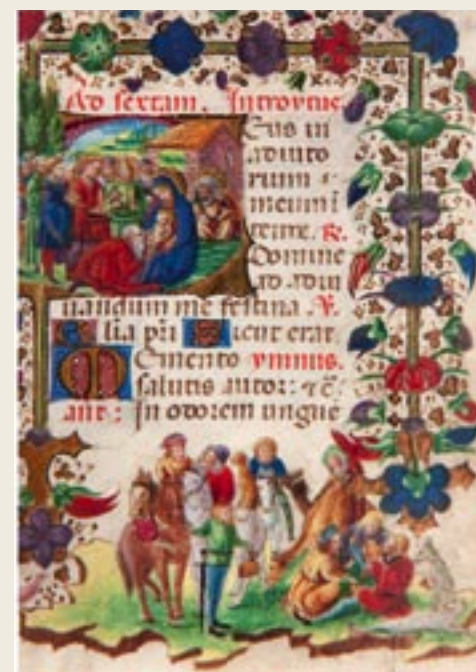 Ad sextam. Introytus
Eus in
adiuto
rium
meum i
tente. R.
Domine
ad adiu
uandum me festina. V.
Glia pri Sicut erat
Memento ymnus.
salutis autor: &c
ant: In odorem ungue